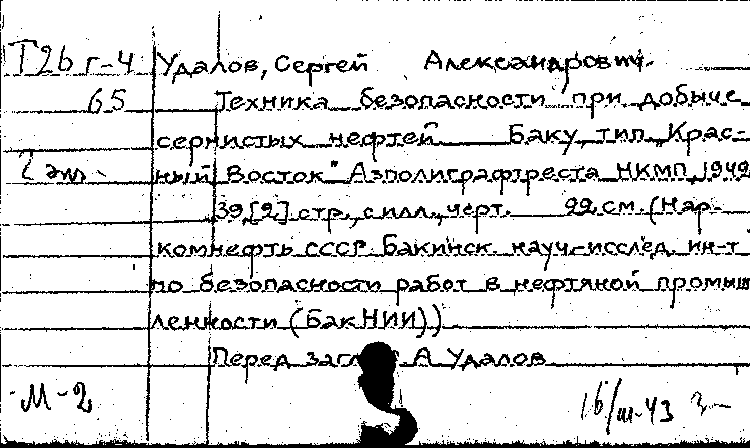 Т26 г-4 Удалов, Сергей Александрович.
65 Техника безопасности при добыче
сернистых нефтей Баку, тип. „Крас-
2 экз. ный Восток" Азполиграфтреста НКМП, 1942
39,[2] стр., с илл., черт. 22 см. (Нар-
комнефть СССР. Бакинск. науч.-исслед. ин-т
по безопасности работ в нефтяной промыш
ленности (БакНИИ))
Перед А Удалов
М-2 16/III-43